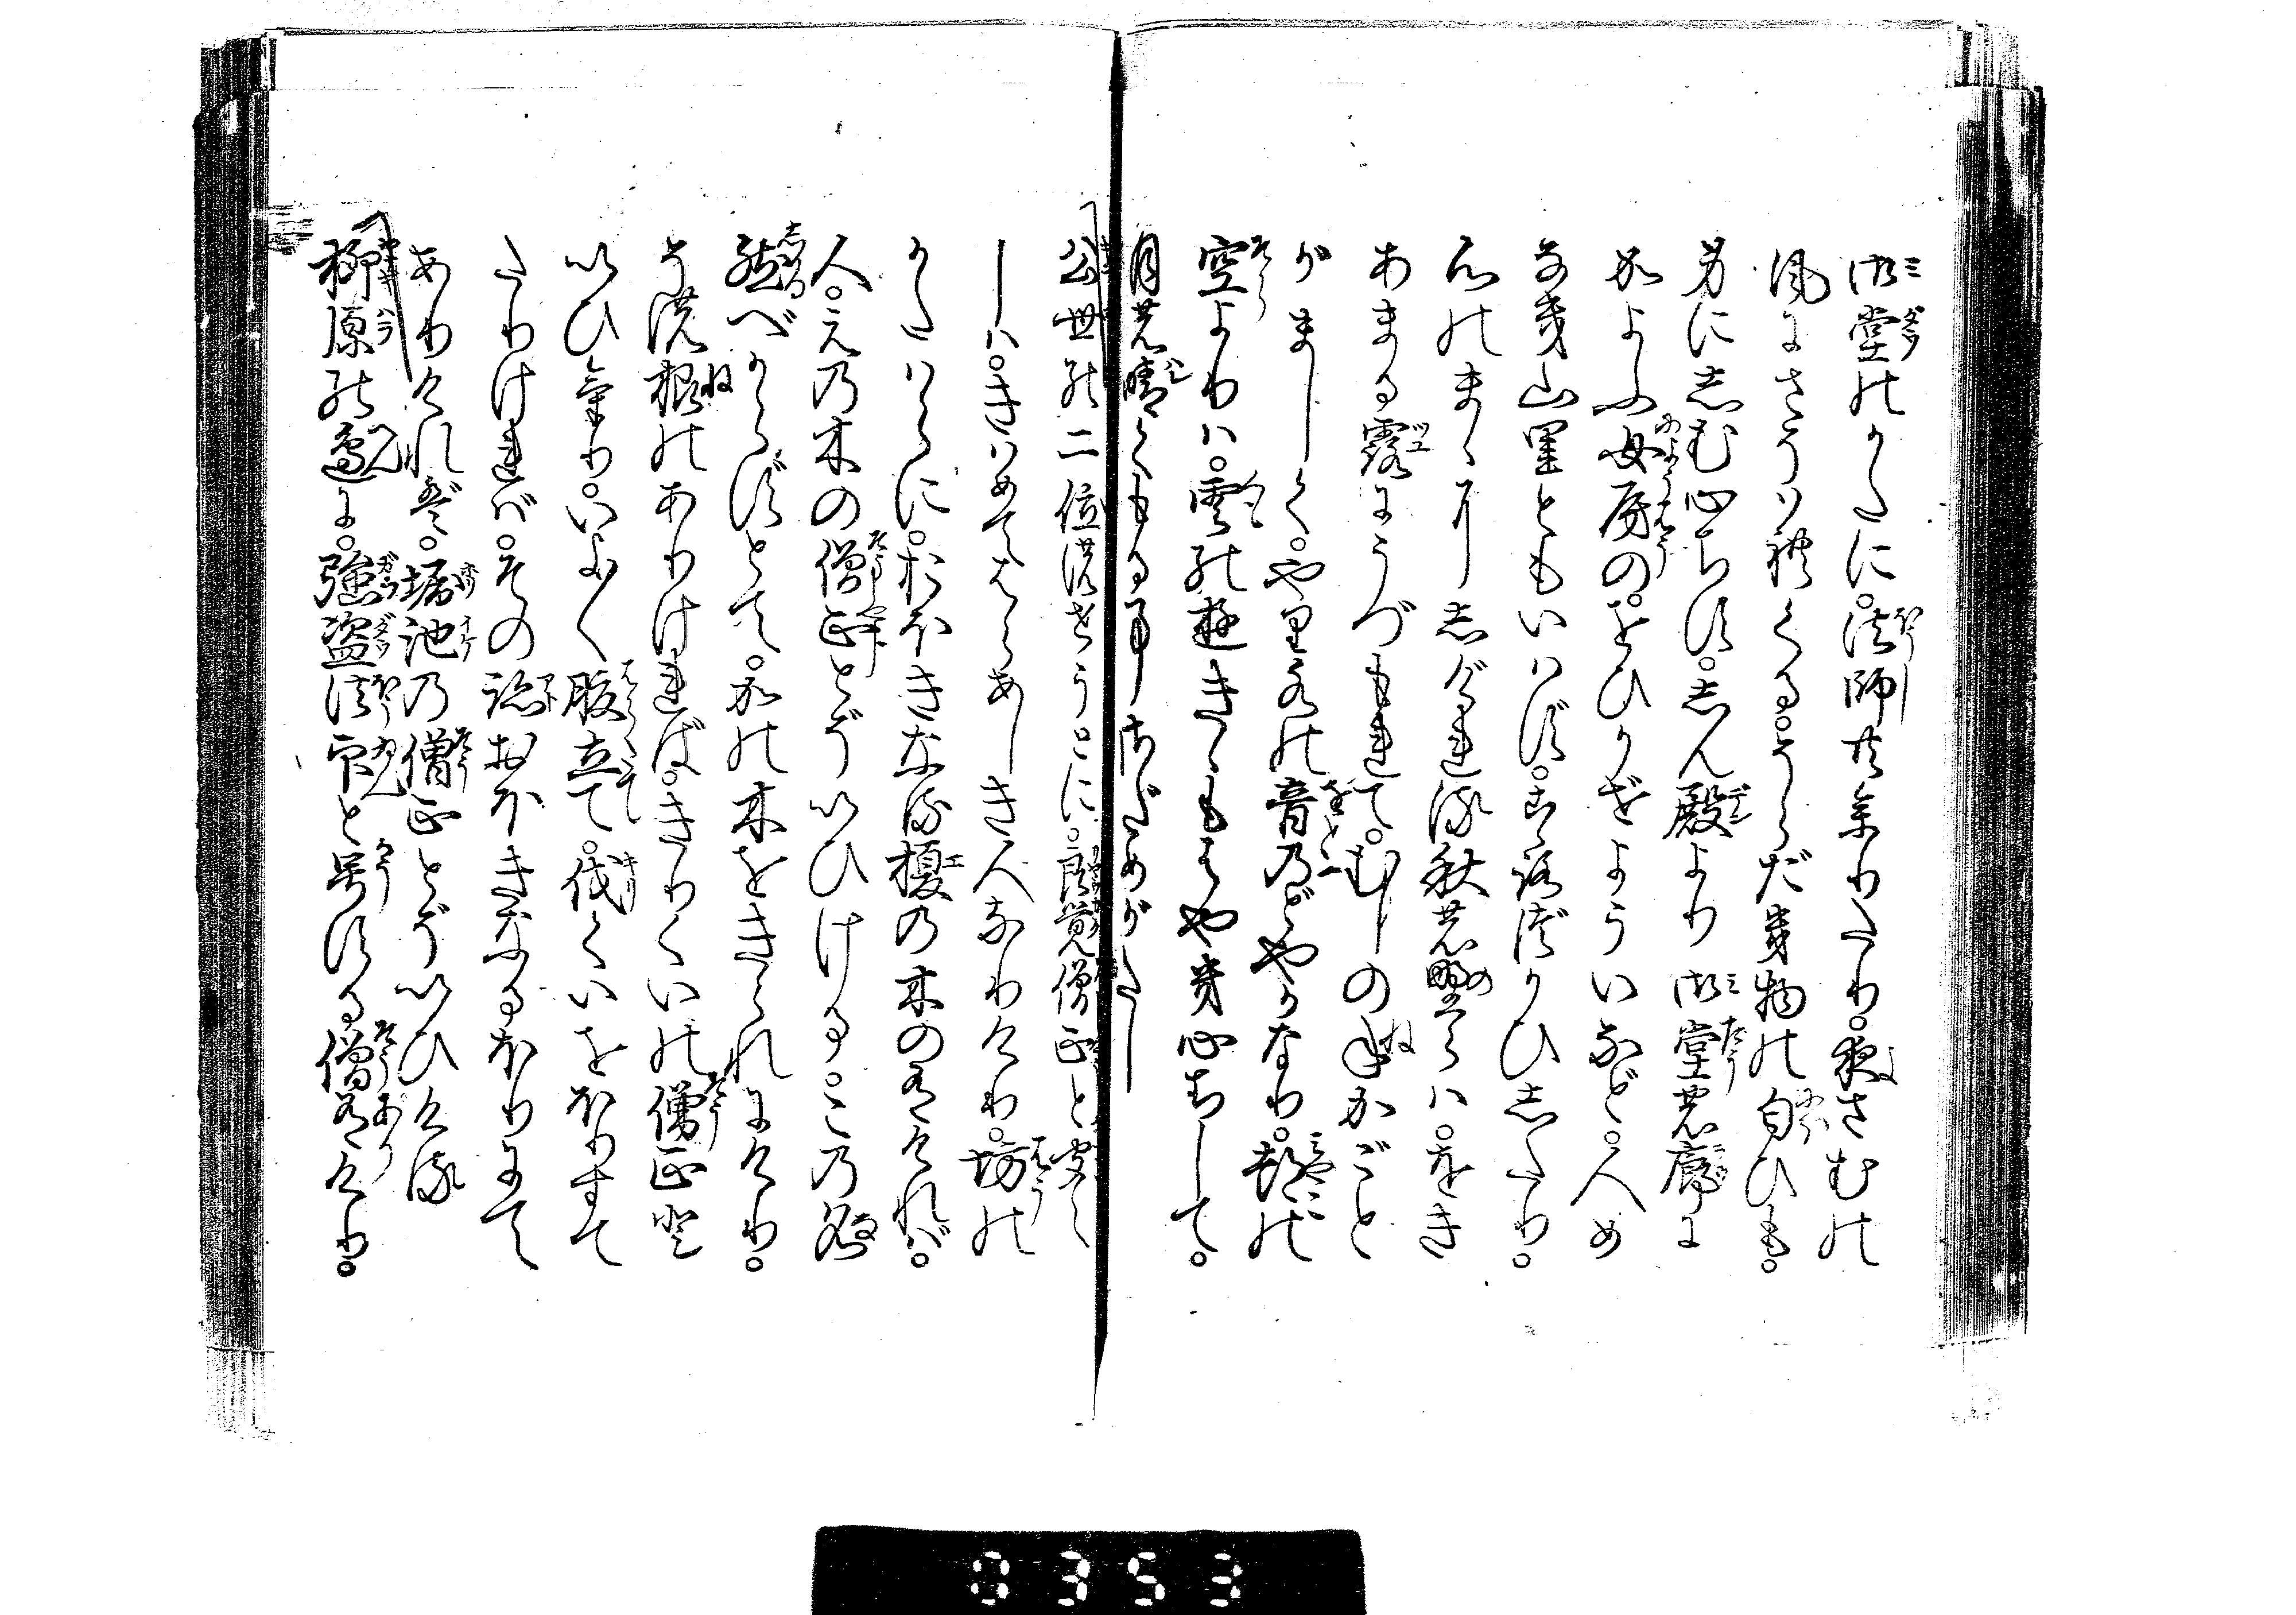 御堂のかたに。法師共参りたり。夜さむの
風にさそはれくる。そらだき物の匂ひも。
身にしむ心ちす。しん殿より御堂の廊に
かよふ女房の。をひかぜよういなど。人め
なき山里ともいはず。心づかひしたり。
心のまゝにしげれる秋の野らは。をき
あまる露にうづもれて。むしの音かごと
がましく。やり水の音のどやかなり。都の
空よりは。雲の往きゝもはやき心ちして。
月の晴くもる事さだめがたし
公世の二位のせうとに。良覚僧正と聞え
しは。きはめてはらあしき人なりけり。坊の
かたはらに。おほきなる榎の木の有ければ。
人。えの木の僧正とぞいひける。この名
然べからずとて。かの木をきられにけり。
その根のありければ。きりくいの僧正と
いひけり。いよ〳〵腹立て。伐くいをほりすて
たりければ。その跡おほきなるほりにて
ありければ。堀池の僧正とぞいひける
柳原の辺に。強盗法印と号する僧有けり。
0353